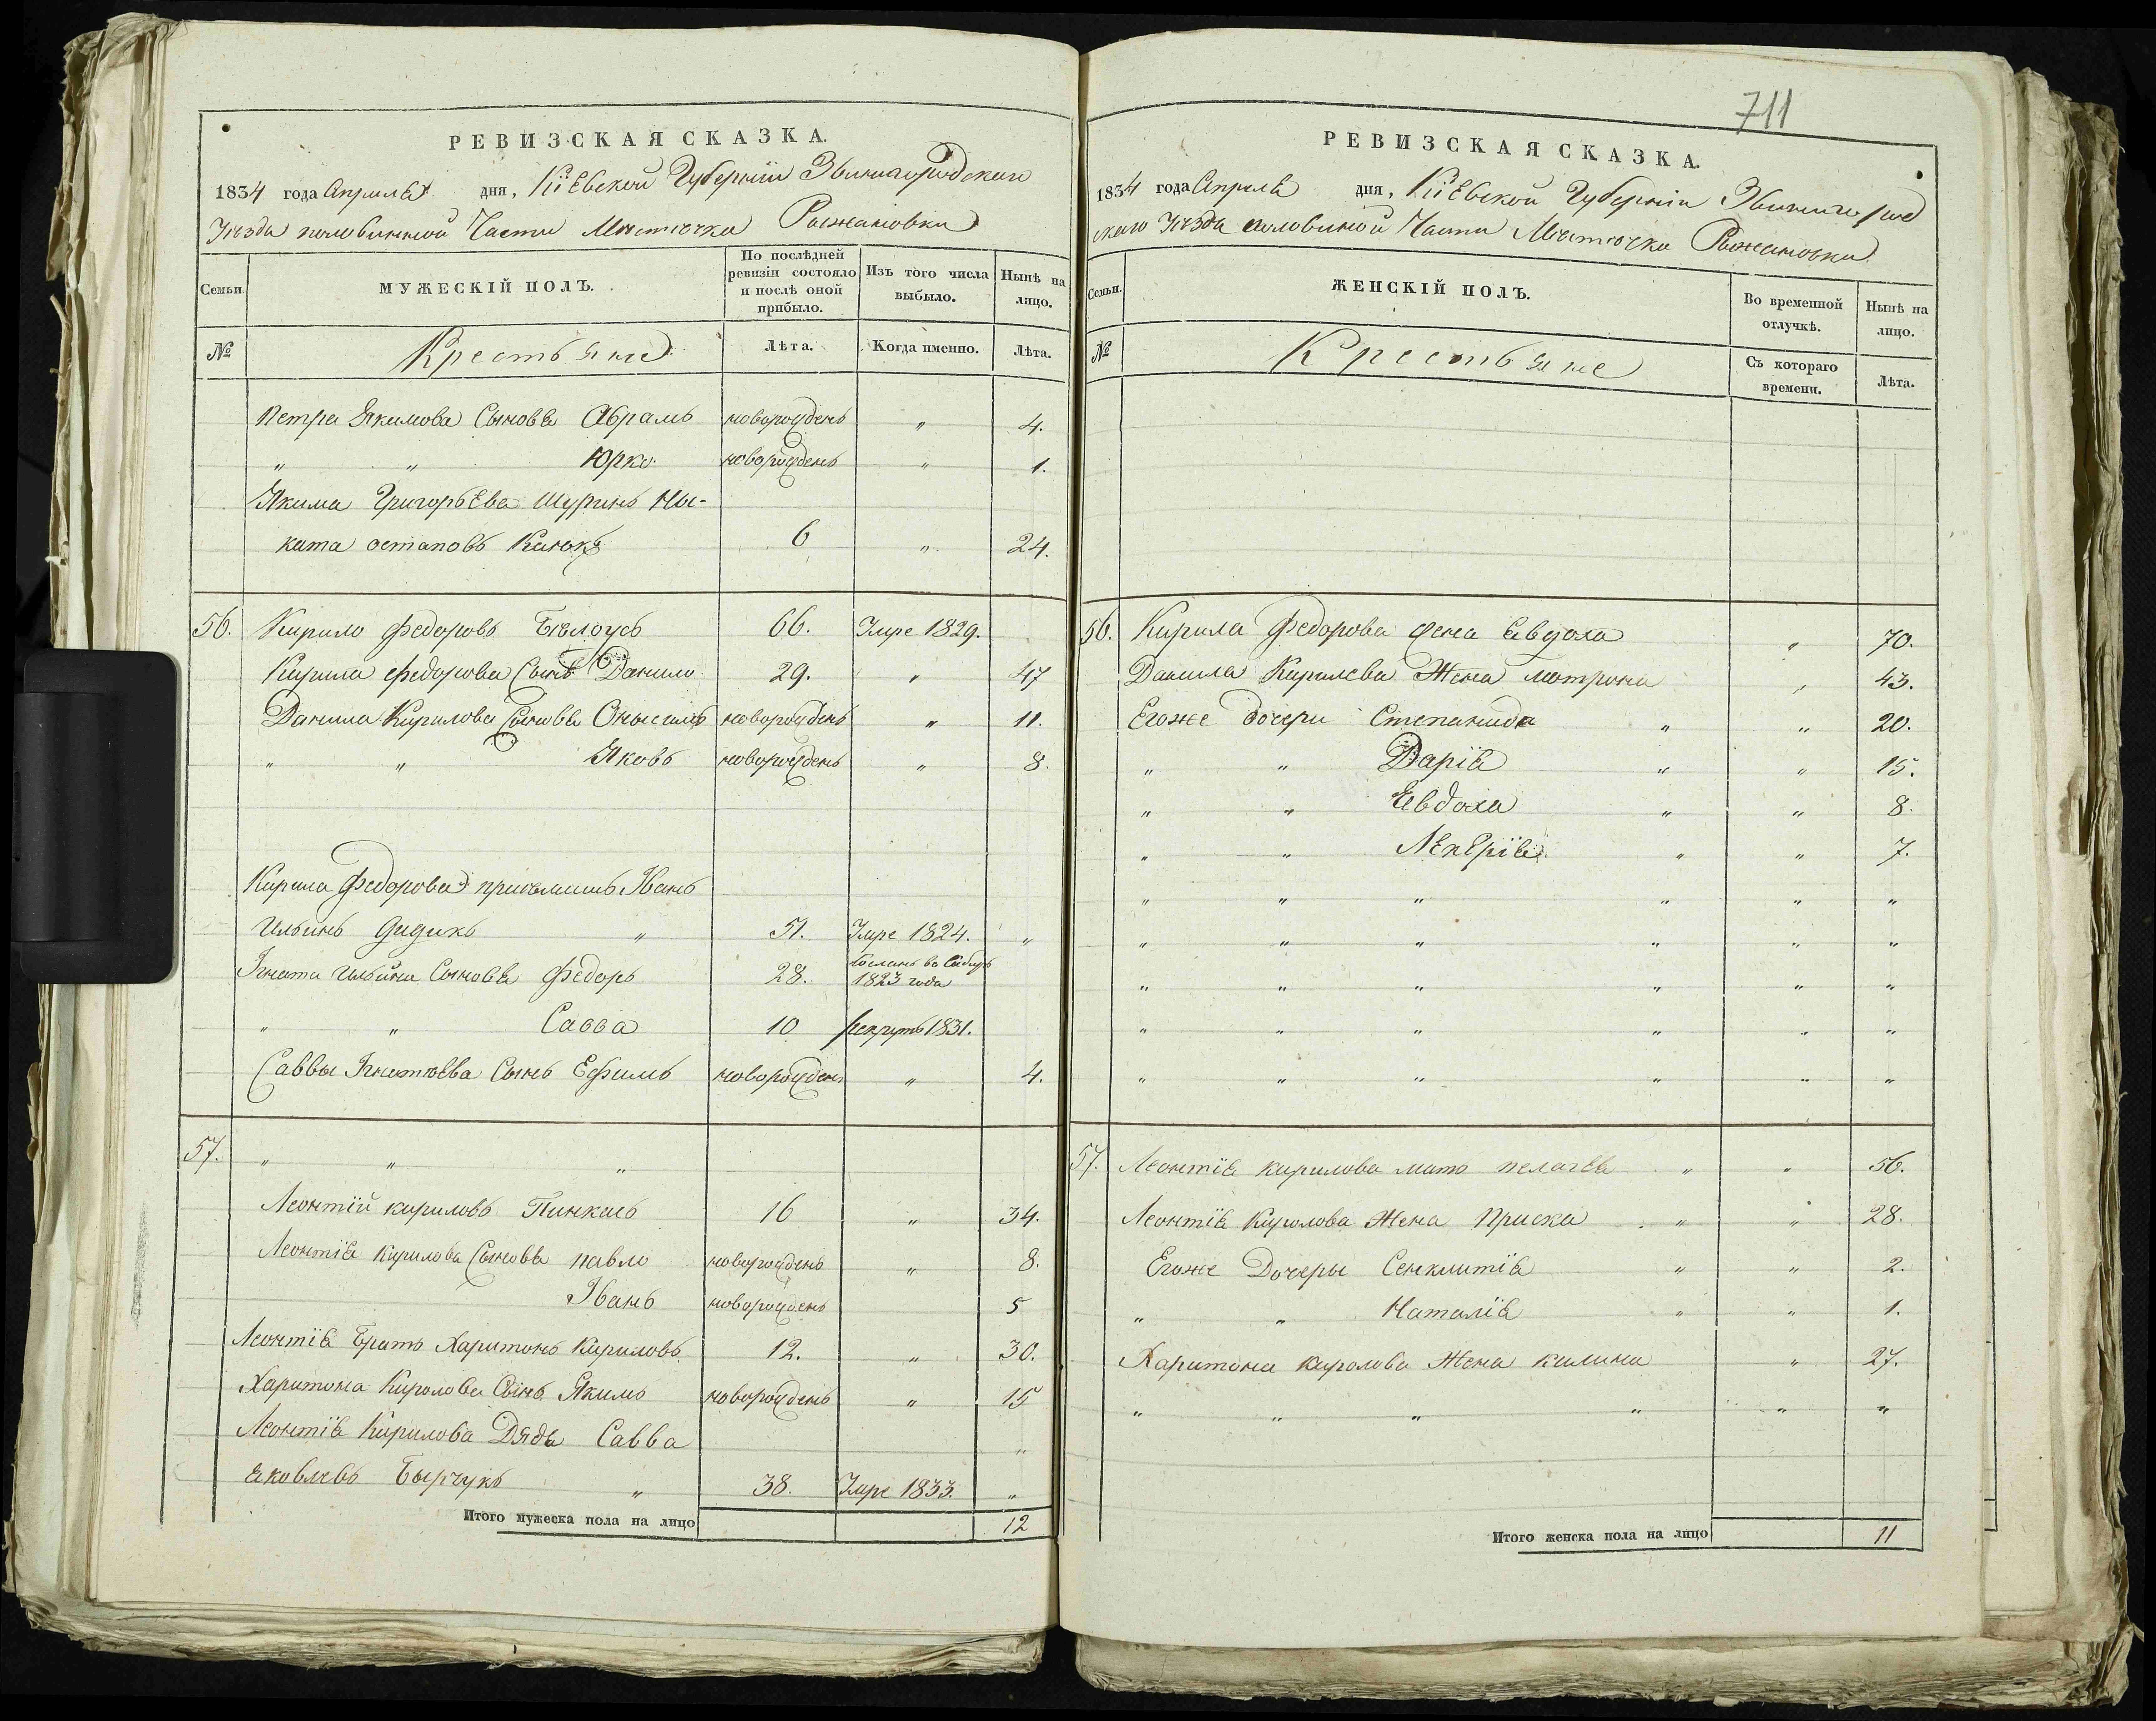 711
РЕВИЗСКАЯ СКАЗКА.
1834 года Апреля дня, Кіевской Губерніи Звенигородскаго
Уезда половинной Части Местечка Рыжановки
Семьи.
МУЖЕСКІЙ ПОЛЪ.
По послѣдней ревизіи состояло и послѣ оной прибыло.
Изъ того числа выбыло.
Нынѣ на лицо.
№
Крестьяне
Лѣта.
Когда именно.
Лѣта.
Петра Якимова Сыновья Абрамъ новорожденъ " 4.
" " Юрко новорожденъ " 1.
Якима Григорьева Шуринъ Ны-
кита остаповъ 6 " 24.
56. Кирило Федоровъ Белоусъ 66. Умре 1829.
Кирила Федорова Сынъ Данило 29. " 47
Данила Кирилова Сыновья Онысимъ новорожденъ " 11.
" " Яковъ новорожденъ " 8.
Кирила Федорова приемышъ Иванъ
Ильинъ Дидикъ " 51. Умре 1824. "
Игната Ильина Сыновья Федоръ 28. Посланъ во Сибирь 1823 года
" " Савва 10 рекрутъ 1831.
Саввы Игнатьева Сынъ Ефимъ новорожденъ " 4.
57. " " "
Леонтій кириловъ Пинкасъ 16 " 34.
Леонтія Кирилова Сыновья павло новорожденъ " 8.
Іванъ новорожденъ 5
Леонтія Братъ Харитонъ Кириловъ 12. " 30.
Харитона Кирилова Сынъ Якимъ новорожденъ " 15
Леонтія Кирилова Дядя Савва "
яковлевъ Бырчукъ " 38. Умре 1833. "
Итого мужеска пола на лицо 12
РЕВИЗСКАЯ СКАЗКА.
1834 года Апреля дня, Кіевской Губерніи Звенигород
скаго Уезда половиной Части Местечка Рыжановки
Семьи.
ЖЕНСКІЙ ПОЛЪ.
Во временной отлучкѣ.
Нынѣ на лицо.
№
Крестьяне
Съ котораго времени.
Лѣта.
56. Кирила Федорова жена Евдоха " 70.
Данила Кирилова Жена мотрона " 43.
Егоже дочери Степанида " " 20.
" " Дарія " " 15.
" " Евдоха " " 8.
" " Лекерія " " 7.
" " " " " "
" " " " " "
" " " " " "
" " " " " "
" " " " " "
57. Леонтія кирилова мать пелагея " " 56.
Леонтія Кирилова Жена Приска " " 28.
Егоже Дочеры Сенклитія " " 2.
" " Наталія " " 1.
Харитона кирилова Жена килина " 27.
" " " " " "
Итого женска пола на лицо 11